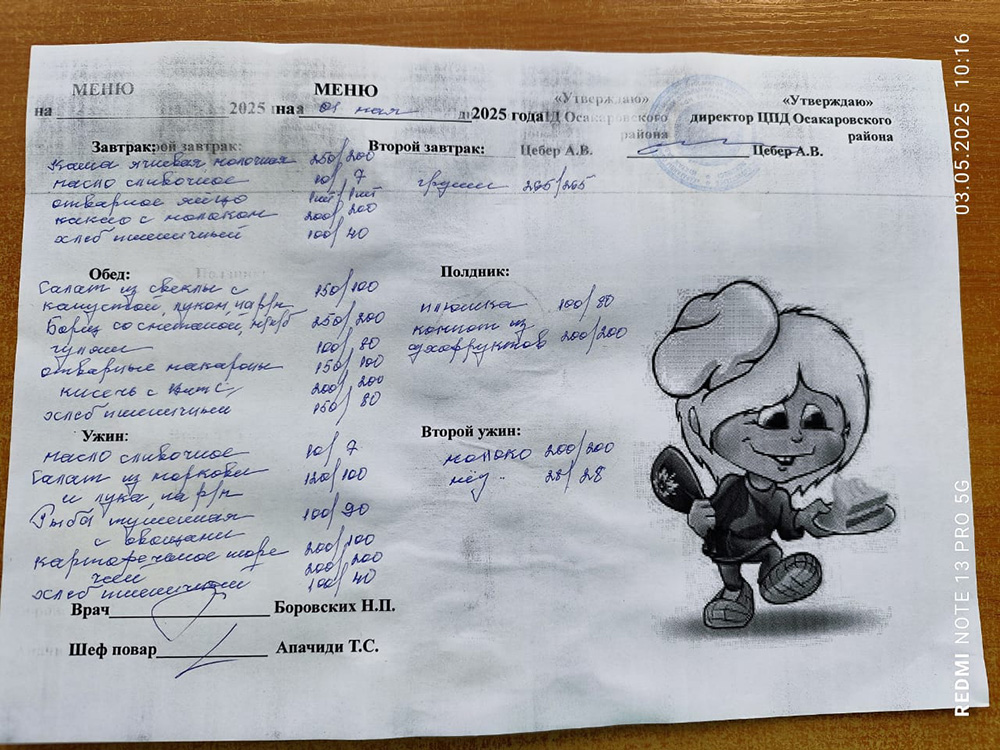 МЕНЮ
МЕНЮ
на 2025
на 01 мая 2025 года
«Утверждаю»
Д Осакаровского
района
Цебер А.В.
«Утверждаю»
директор ЦПД Осакаровского
района
Цебер А.В.
Завтрак:
Каша ячневая молочная 250/200
масло сливочное 10/7
отварное яйцо 1шт/1шт
какао с молоком 200/200
хлеб пшеничный 100/40
Второй завтрак:
груши 265/265
Обед:
Салат из свеклы с 150/100
капустой, луком, на р/м
Борщ со сметаной, 250/200
гуляш 100/80
отварные макароны 150/100
кисель с 200/200
хлеб пшеничный 150/80
Полдник:
плюшка 100/80
компот из
сухофруктов 200/200
Ужин:
масло сливочное 10/7
Салат из моркови 120/100
и лука, на р/м
Рыба тушенная 100/90
с овощами
картофельное пюре 200/100
чай 200/200
хлеб пшеничный 100/40
Второй ужин:
молоко 200/200
мёд 28/28
Врач Боровских Н.П.
Шеф повар Апачиди Т.С.
03.05.2025 10:16
REDMI NOTE 13 PRO 5G